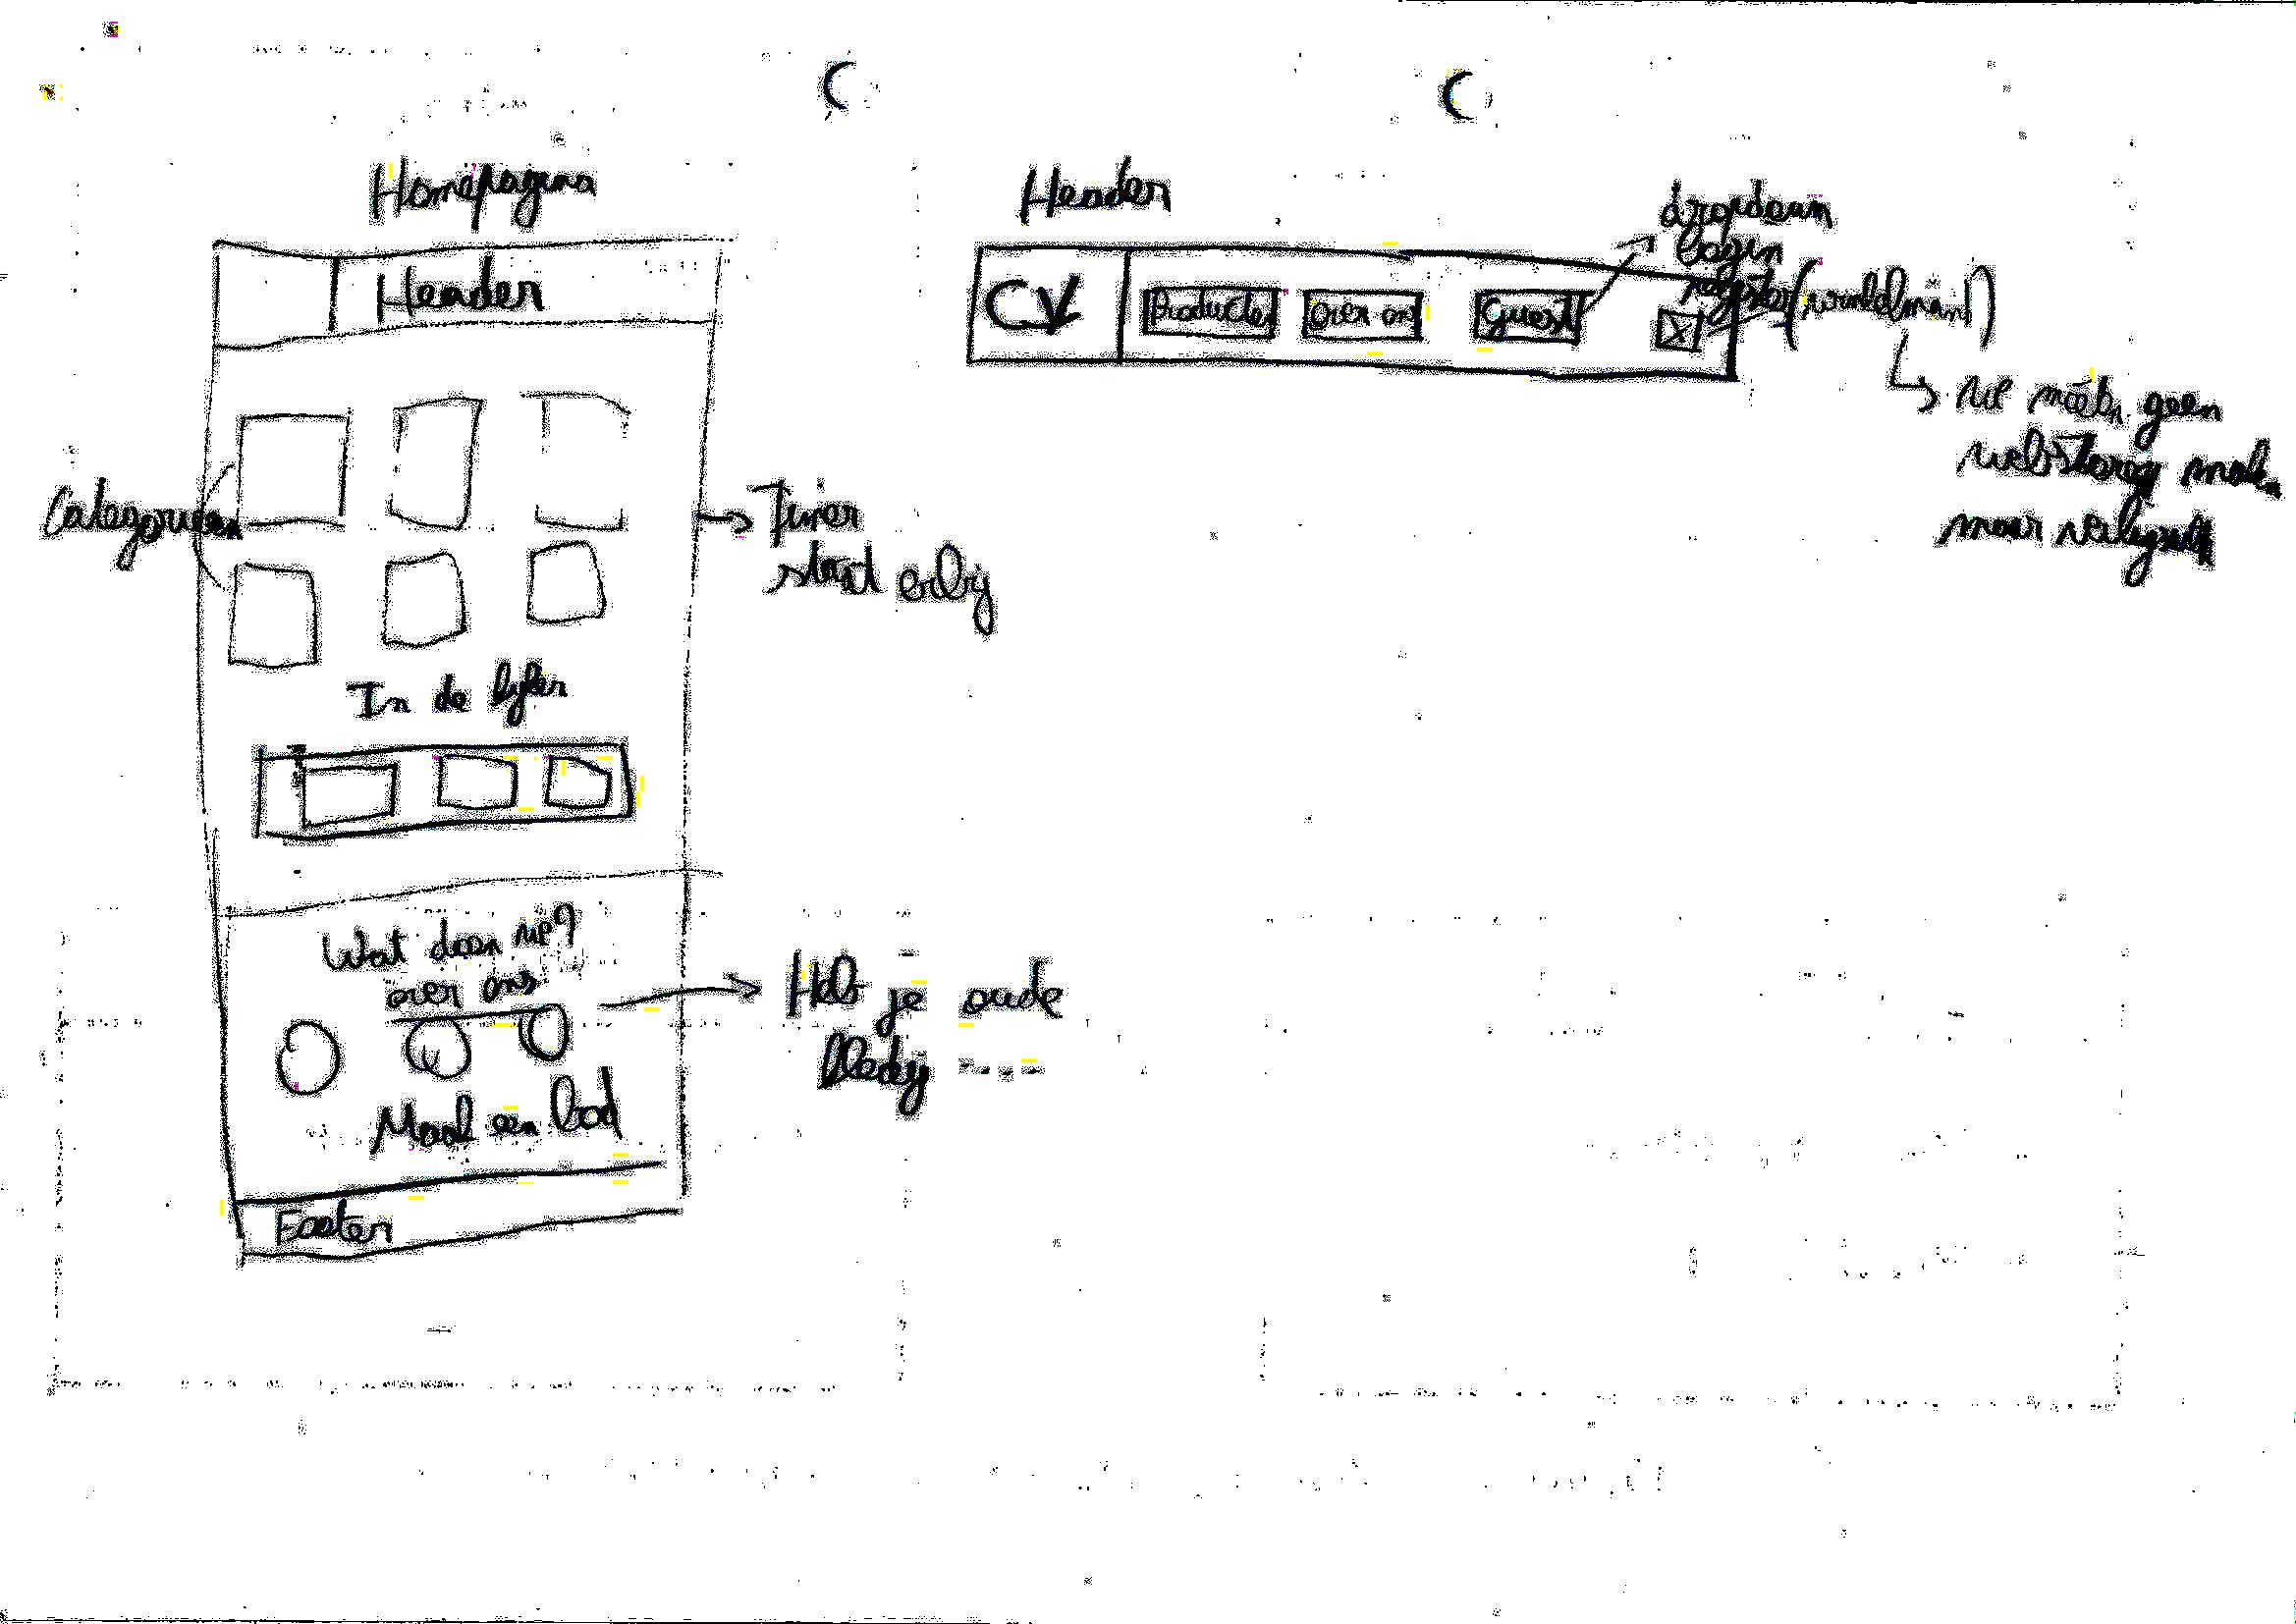 Homepagina
Header
Categorieën
Timer
start erbij
In de kijker
Wat doen we?
over ons
Heb je oude
kledij ----
Maak een bod
Footer
Header
CV
Producten
over ons
Guest
dropdown
login
register
(winkelmand)
we moeten geen
webstore maken
maar veiling